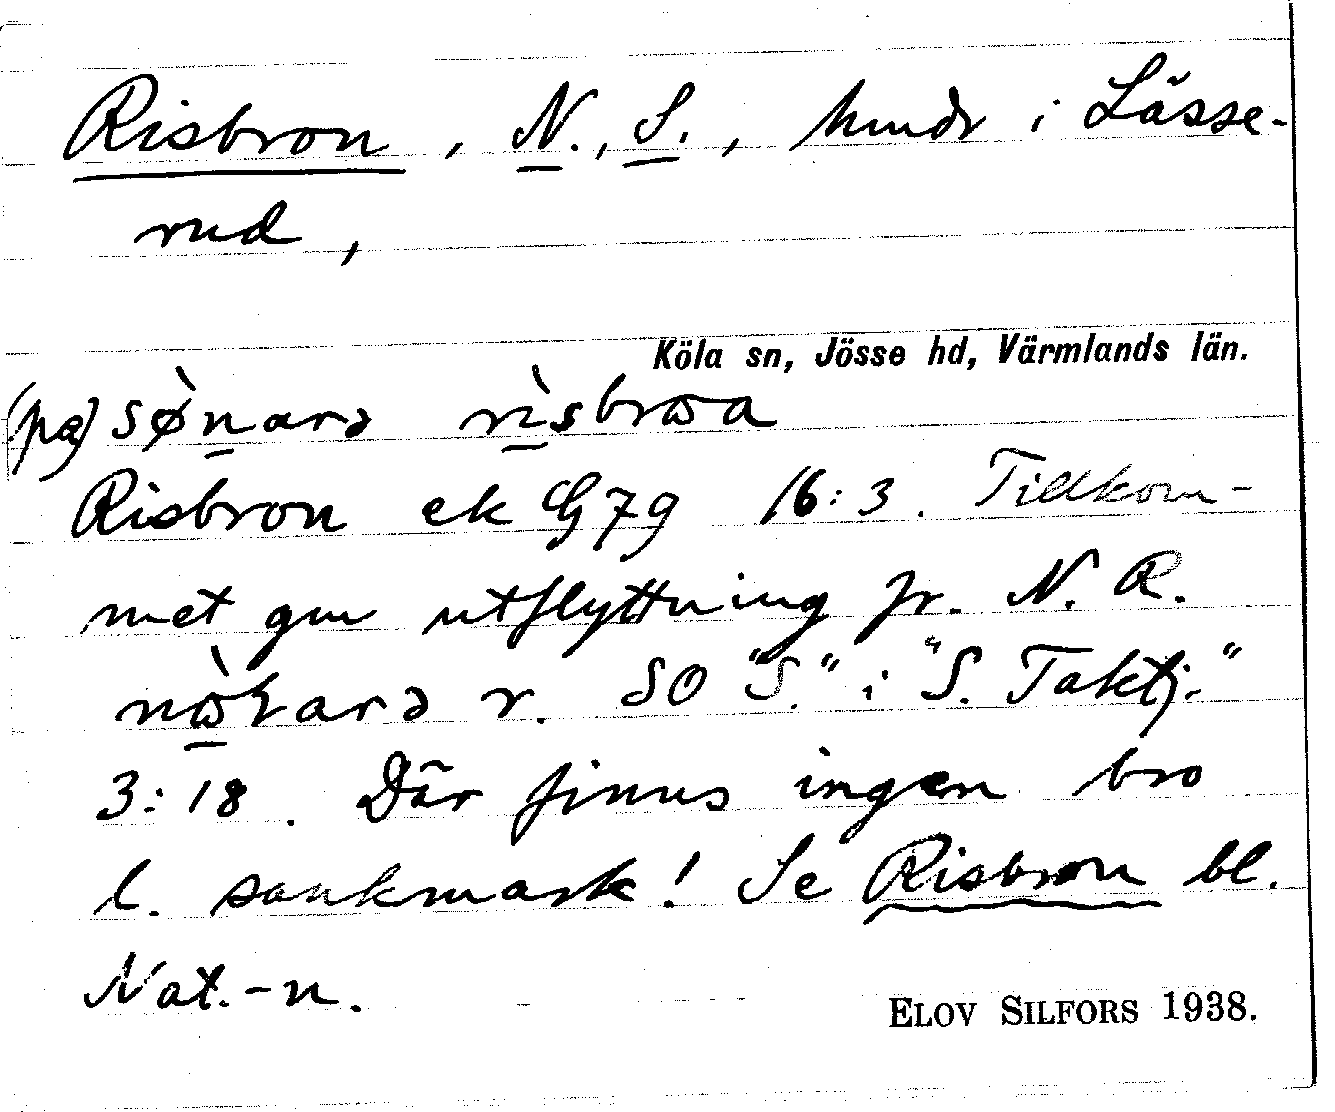 Risbron, N., S., hmdr i Lässe-
rud,
Köla sn, Jösse hd, Värmlands län.
(på) sø̀narə rìsbroa
Risbron ek G79 16:3. Tillkom-
met gm utflyttning fr. N. R.
r. SO "S." i "S. Taktj."
3:18. Där finns ingen bro
l. sankmark! Se Risbron bl.
Nat.-n.
ELOV SILFORS 1938.